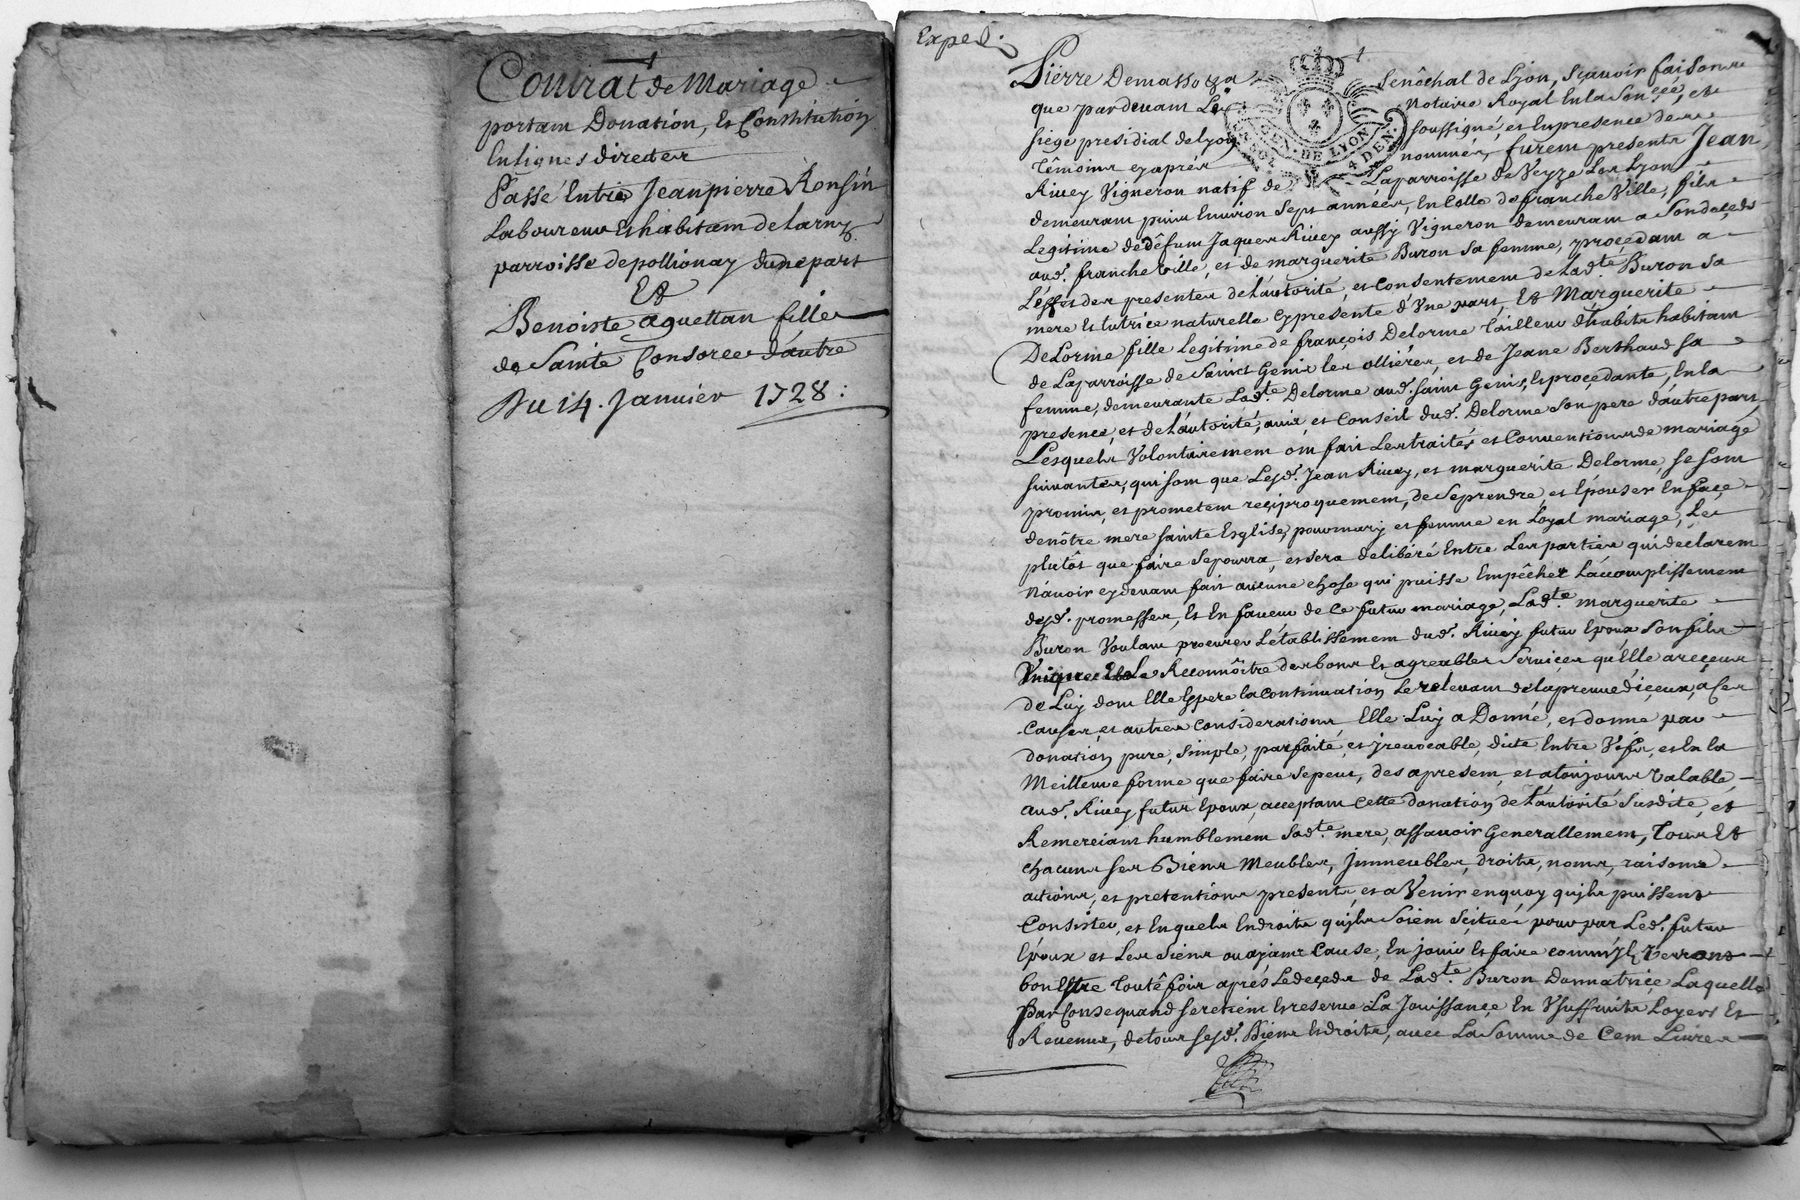 Contrat de Mariage
portant Donation, Et Constitution
En lignes directes
Passé Entre Jeanpierre Ronsin
Laboureur Et habitant de Larny
parroisse de pollionay d'une part
Et
Benoiste aguettan fille
de Sainte Consorce d'autre
Du 14. Janvier 1728:
Exped.
Pierre Demassotza Sénéchal de Lyon, Sçavoir faisons
que pardevant Le Notaire Royal En la Sen.ceé, et
siege presidial de Lyon soussigné, et En presence des
Témoins cy aprés nommés, furent presents Jean
Rivey Vigneron natif de Laparroisse de Veyze Les Lyon
demeurant puis Environ Sept années, En Celle de francheville, fils
Legitime de défunt Jaques Rivey aussy Vigneron demeurant a Son decéds
aud. francheville, et de marguerite Buron sa femme, procedant a
L'éffet des presentes de L'autorité, et Consentement de Lad.te Buron sa
mere Et tutrice naturelle cy presente d'Une part, Et Marguerite
DeLorme fille Legitime de françois Delorme Tailleur d'habits habitant
de Laparroisse de Sainct Genis les ollières, et de Jeane Berthaud sa
femme, demeurante Lad.te Delorme aud. saint Genis, Et procedante, En la
presence, et de L'autorité, avis, et Conseil dud. Delorme Son pere d'autre part,
Lesquels Volontairement ont fait Les traités, et Conventions de mariage
suivantes, qui sont que Lesd. Jean Rivey, et marguerite Delorme, se sont
promis, et prometent reciproquement, de Se prendre, et Epouser En face
de nôtre mere sainte Esglise, pour mary et femme en Loyal mariage, Le
plutôt que faire Se pourra, et sera délibéré Entre Les parties qui declarent
n'avoir cy devant fait aucune chose qui puisse Empêcher L'acomplissement
desd. promesses, Et En faveur de Ce futur mariage, Lad.te marguerite
Buron Voulant procurer L'établissement dud. Rivey futur Epoux Son fils
Unique Et Le Reconnôitre des bons Et agreables Services qu'Elle a reçeus
de Luy dont Elle Espere la continuation Le relevant de la preuve d'iceux, a Ces
Causes, et autres Considerations Elle Luy a Donné, et donne par
donation pure, simple, parfaite, et jrevocable, dite Entre Vifs, et En la
Meilleure forme que faire Se peut, des apresent, et a toujours Valable,
aud. Rivey futur Epoux, acceptant Cette donation, de L'autorité Susdite, et
Remerciant humblement Sad.te mere, assavoir Generallement, Tous Et
chacuns ses Biens Meubles, Jmmeubles, droits, noms, raisons
actions, et pretentions presents, et a Venir en quoy qu'jls puissent
Consister, et En quels Endroits qu'jls Soient Scitués pour par Led. futur
Epoux et Les Siens ou ayant Cause, En jouir Et faire comm'jls Verront
bon Estre Toutêfois aprés Le decéds de Lad.te Buron Donnatrice Laquelle
Par Consequand se retient Et reserve La Jouissance En Vsuffruits Loyers Et
Revenus, de tous sesd. Biens Et droits, avec La Somme de Cent Livres